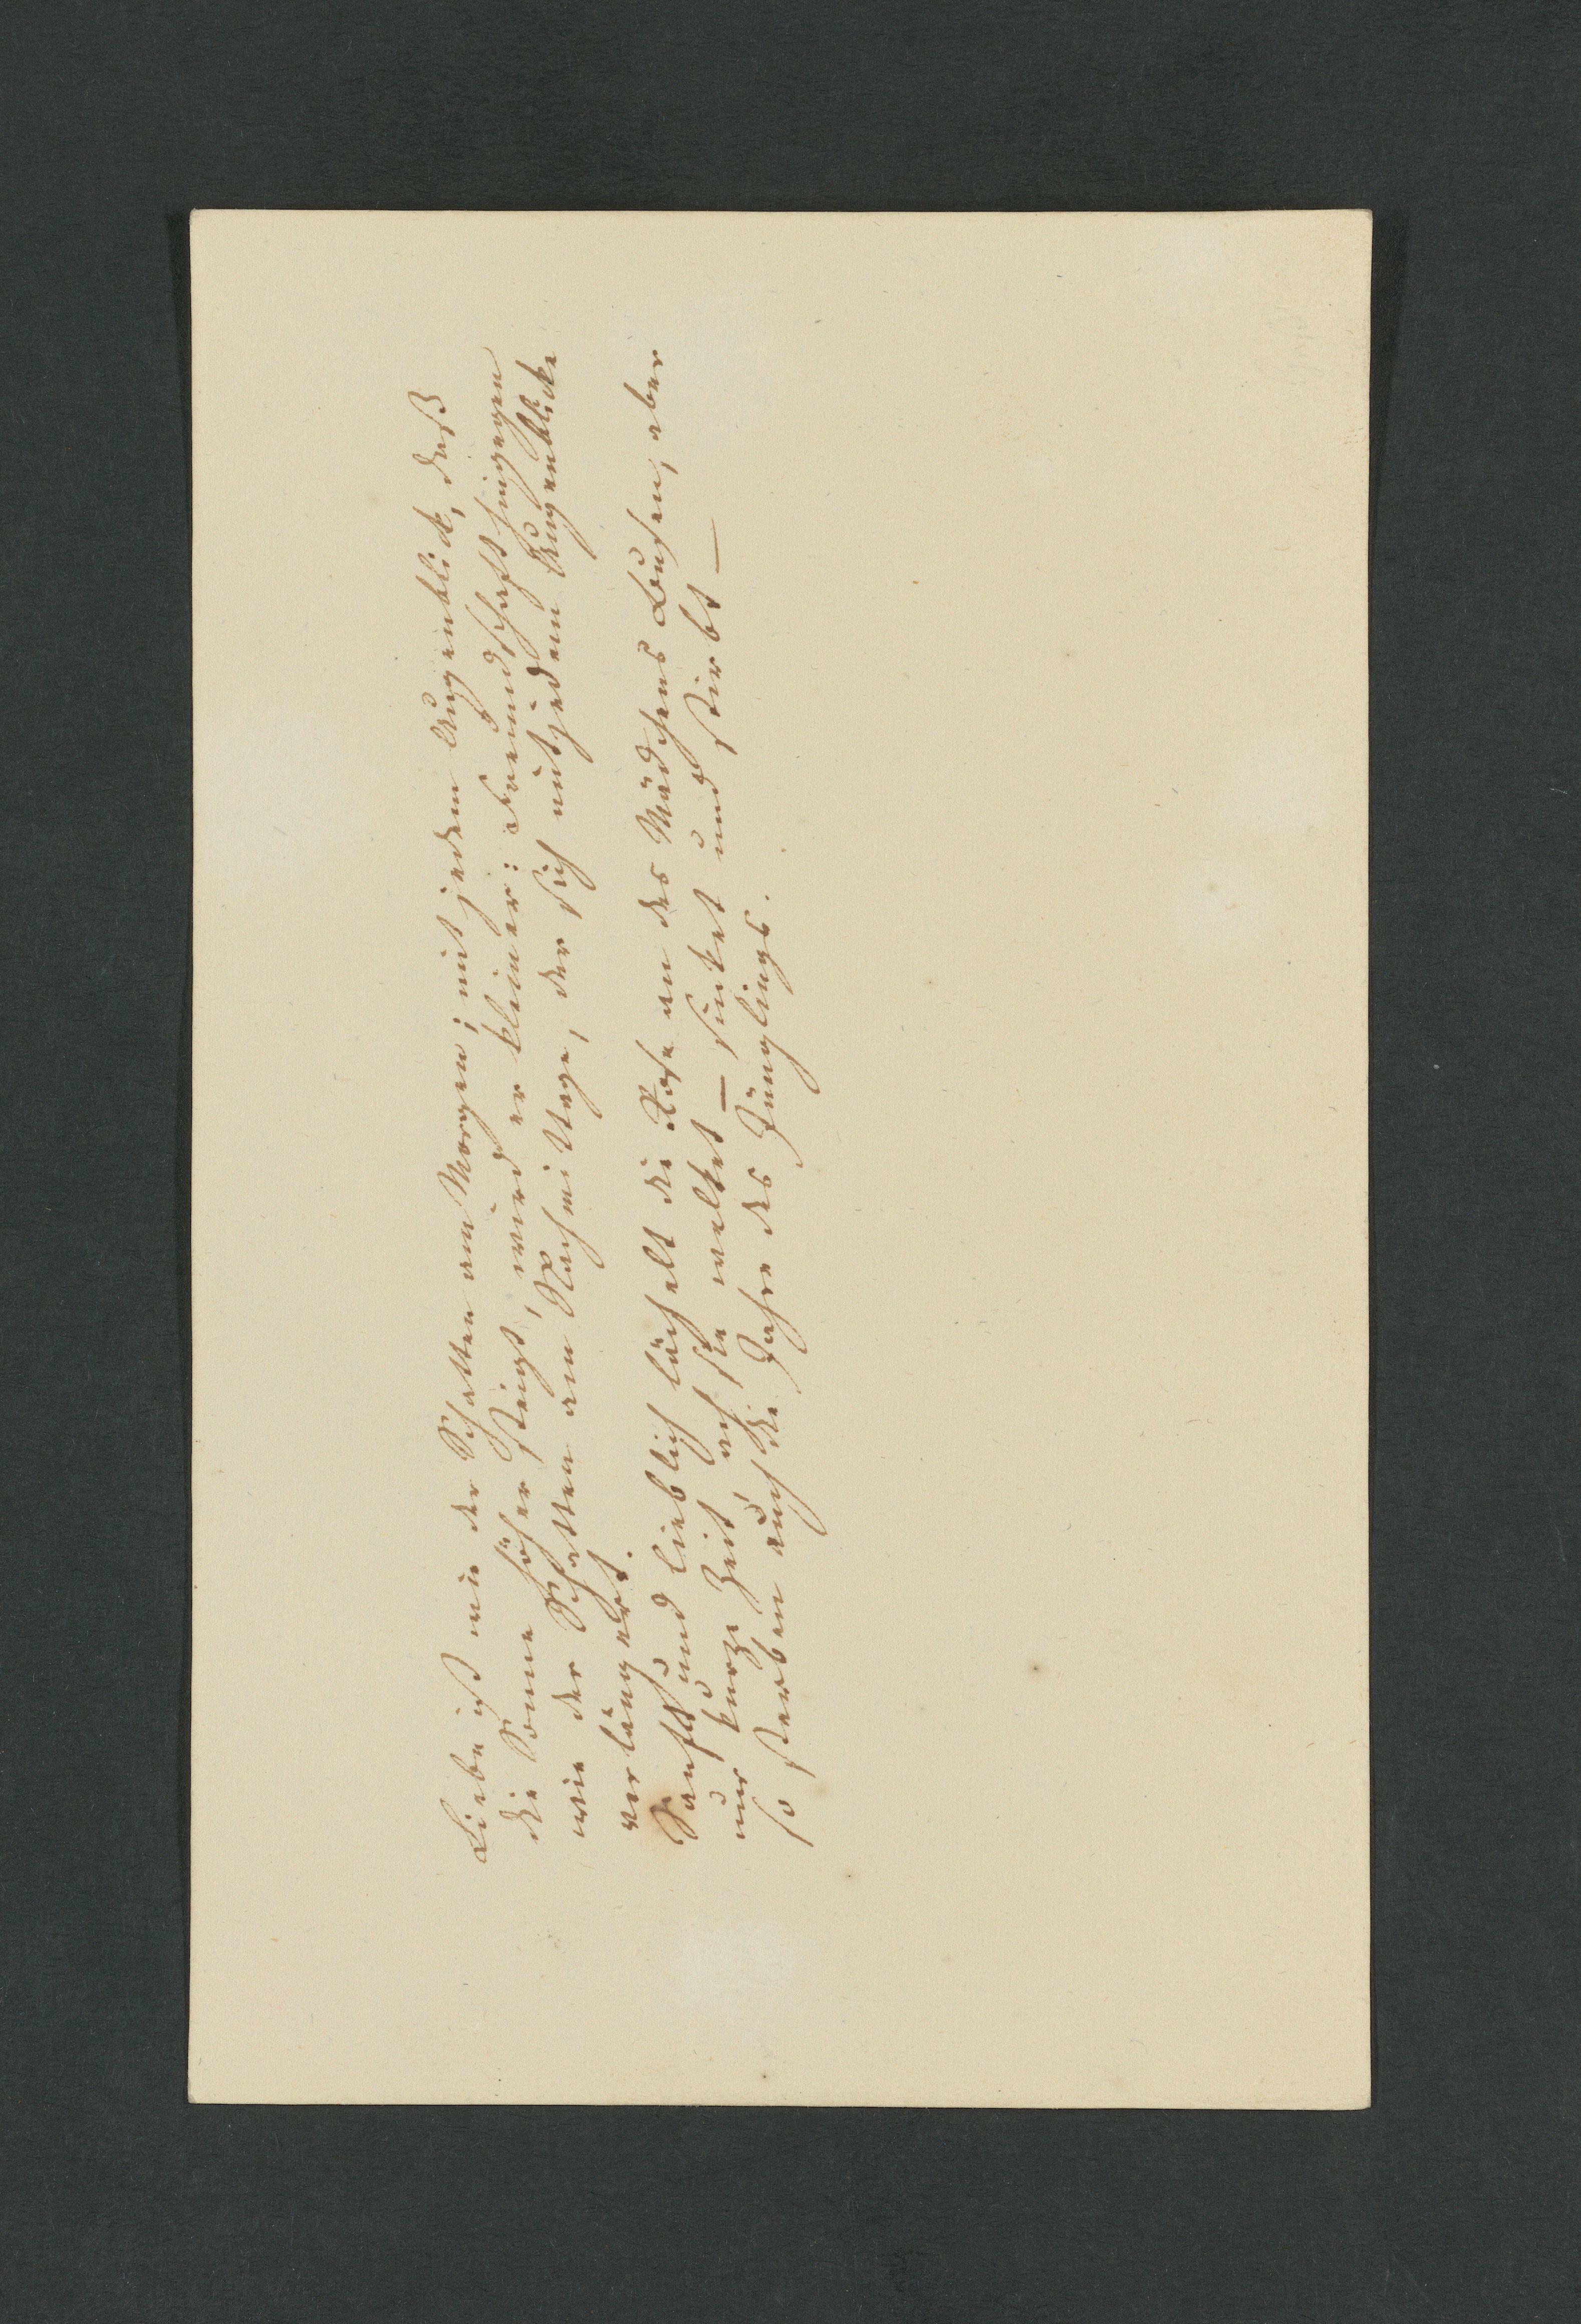 Liebe ist wie der Schatten am Morgen; mit jedem Augenblick, daß
die Sonne höher steigt, wird er kleiner: Freundschaft hingegen
wie der Schatten am Nachmittage, der sich mit jedem Augenblicke
verlängert.
Sanft und lieblich lächelt die Rose an des Mädchens Busen, aber
nur kurze Zeit, ach sie welket — sinket und stirbt —
so sterben auch die Jahre des Jünglings.